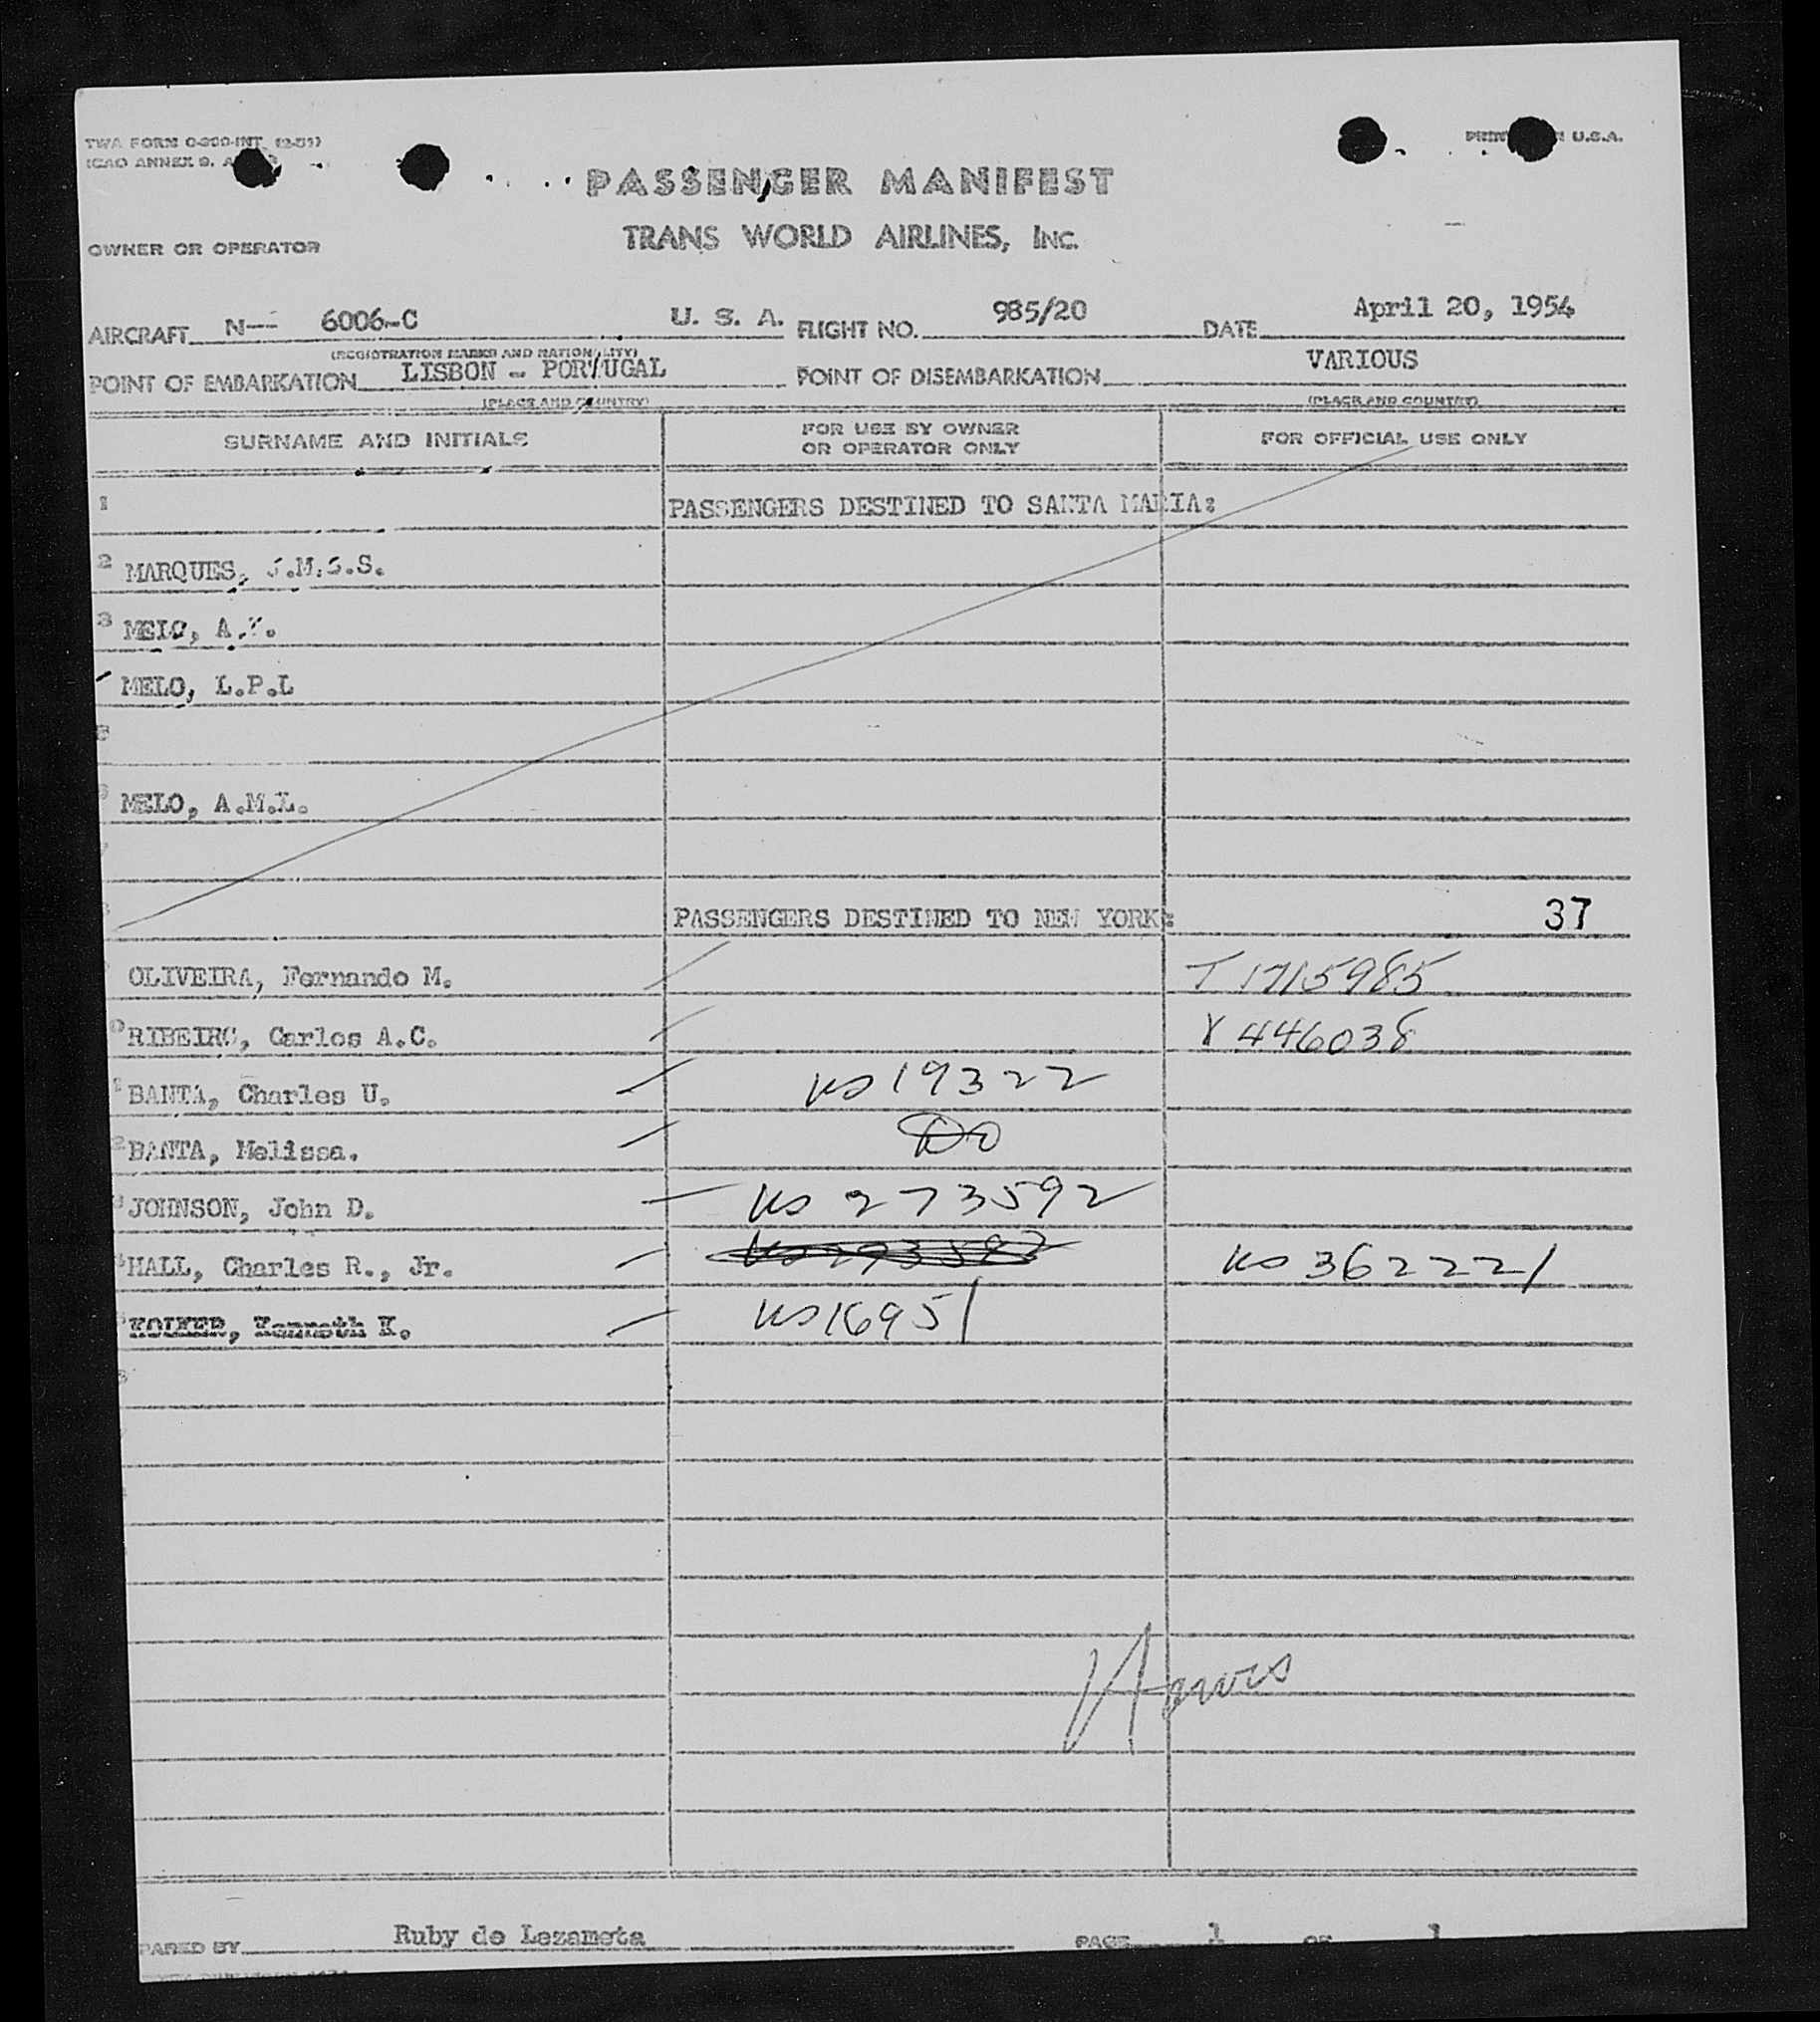 TWA FORM 0-200-INT (2-51)
ICAO ANNEX 9, A
PRINT N U.S.A.
PASSENGER MANIFEST
OWNER OR OPERATOR
TRANS WORLD AIRLINES, INC.
AIRCRAFT N-- 6006-C U. S. A. FLIGHT NO. 985/20 DATE April 20, 1954
(REGISTRATION MARKS AND NATIONALITY)
POINT OF EMBARKATION LISBON - PORTUGAL POINT OF DISEMBARKATION VARIOUS
(PLACE AND COUNTRY) (PLACE AND COUNTRY)
SURNAME AND INITIALS FOR USE BY OWNER OR OPERATOR ONLY FOR OFFICIAL USE ONLY
1 PASSENGERS DESTINED TO SANTA MARIA:
2 MARQUES, .M.S.S.
3 MELO, A.
MELO, L.P.L
5
MELO, A.M.L.
PASSENGERS DESTINED TO NEW YORK: 37
OLIVEIRA, Fernando M. T 1715985
0 RIBEIRO, Carlos A.C. V 446038
1 BANTA, Charles U. US 19322
2 BANTA, Melissa. DO
3 JOHNSON, John D. US 273592
HALL, Charles R., Jr. US 362221
Kenneth K. US16951
PARED BY Ruby de Lezameta PAGE 1 OF 1